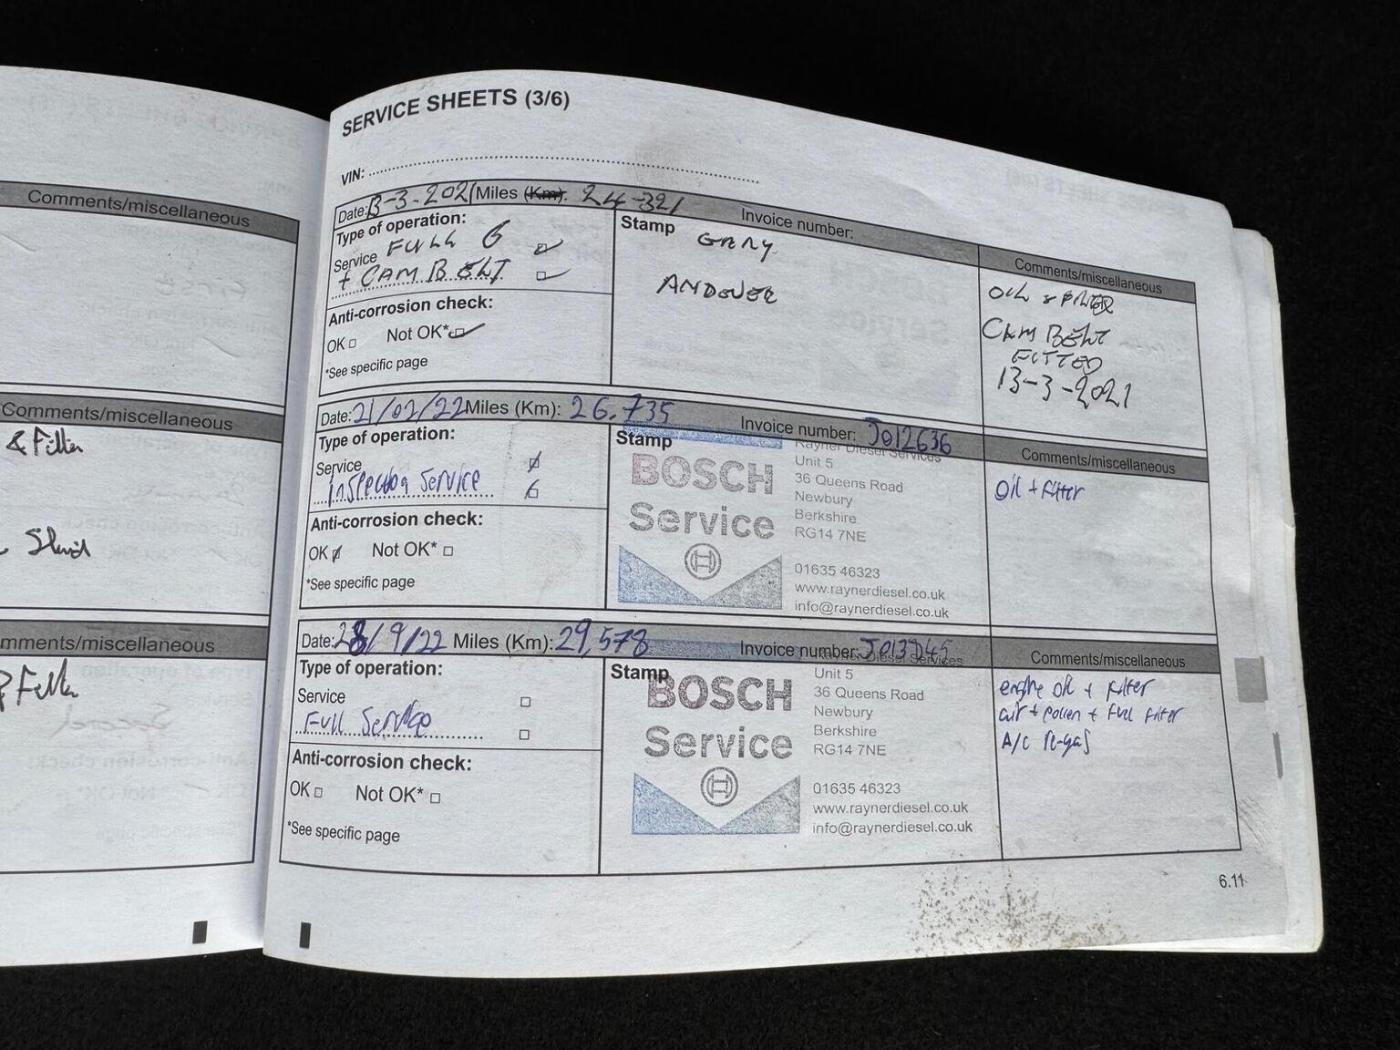 Comments/miscellaneous
Comments/miscellaneous
& Filter
mments/miscellaneous
SERVICE SHEETS (3/6)
VIN:
Date: 13-3-2021 Miles (Km): 24-321 Invoice number:
Type of operation:
Service FULL 6
+ CAM BELT
Anti-corrosion check:
OK Not OK*
*See specific page
Stamp GARY
ANDOVER
Comments/miscellaneous
OIL & FILTER
CAM BELT
FITTED
13-3-2021
Date: 21/02/22 Miles (Km): 26,735 Invoice number: J012636
Type of operation:
Service
inspection Service
6
Anti-corrosion check:
OK Not OK*
*See specific page
Stamp
BOSCH
Service
Rayner Diesel Services
Unit 5
36 Queens Road
Newbury
Berkshire
RG14 7NE
01635 46323
www.raynerdiesel.co.uk
info@raynerdiesel.co.uk
Comments/miscellaneous
Oil + filter
Date: 28/9/22 Miles (Km): 29,578 Invoice number: J013245
Type of operation:
Service
Full Service
Anti-corrosion check:
OK Not OK*
*See specific page
Stamp
BOSCH
Service
Rayner Diesel Services
Unit 5
36 Queens Road
Newbury
Berkshire
RG14 7NE
01635 46323
www.raynerdiesel.co.uk
info@raynerdiesel.co.uk
Comments/miscellaneous
engine oil + filter
air + pollen + fuel filter
A/C Re-gas
6.11